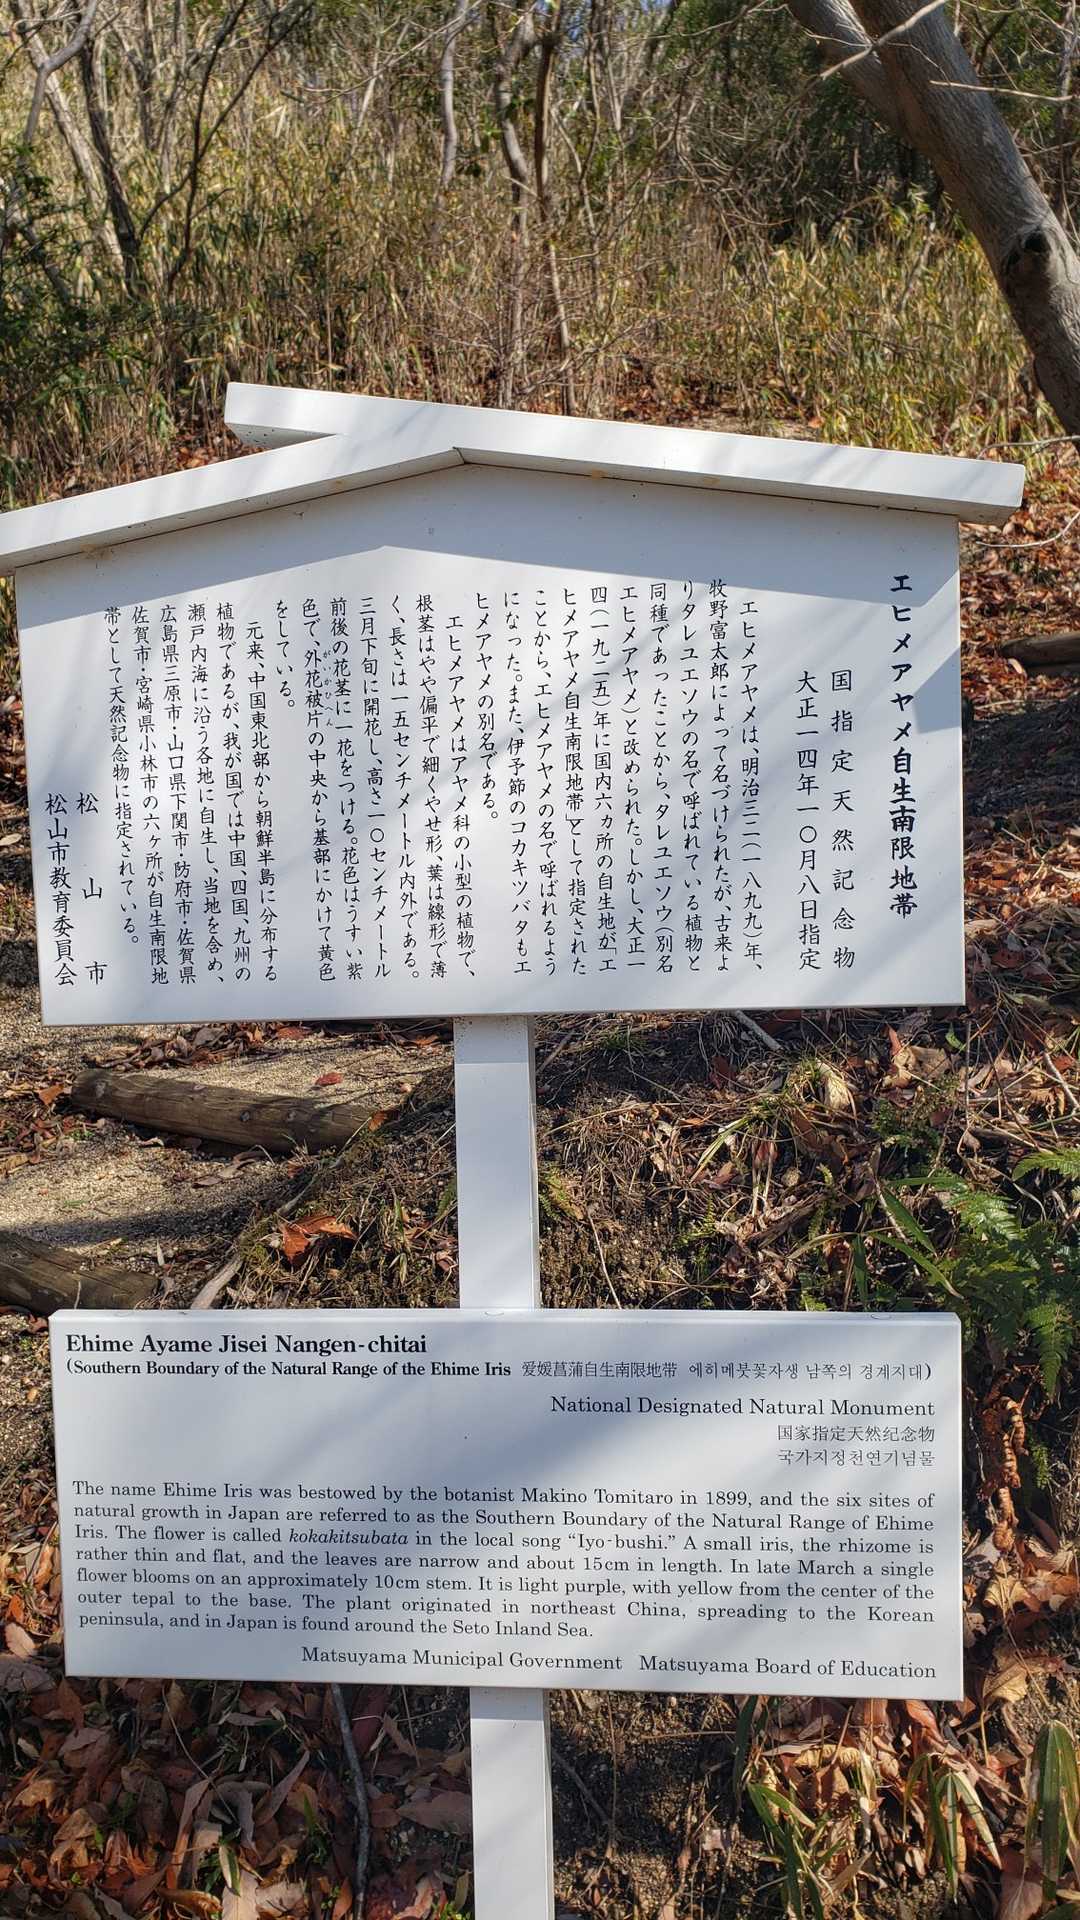 エヒメアヤメ自生南限地帯
国指定天然記念物
大正一四年一〇月八日指定
エヒメアヤメは、明治三二(一八九九)年、
牧野富太郎によって名づけられたが、古来よ
りタレユエソウの名で呼ばれている植物と
同種であったことから、タレユエソウ(別名
エヒメアヤメ)と改められた。しかし、大正一
四(一九二五)年に国内六カ所の自生地が「エ
ヒメアヤメ自生南限地帯」として指定された
ことから、エヒメアヤメの名で呼ばれるよう
になった。また、伊予節のコカキツバタもエ
ヒメアヤメの別名である。
エヒメアヤメはアヤメ科の小型の植物で、
根茎はやや偏平で細くやせ形、葉は線形で薄
く、長さは一五センチメートル内外である。
三月下旬に開花し、高さ一〇センチメートル
前後の花茎に一花をつける。花色はうすい紫
色で、外花被片の中央から基部にかけて黄色
がいかひへん
をしている。
元来、中国東北部から朝鮮半島に分布する
植物であるが、我が国では中国、四国、九州の
瀬戸内海に沿う各地に自生し、当地を含め、
広島県三原市・山口県下関市・防府市・佐賀県
佐賀市・宮崎県小林市の六ヶ所が自生南限地
帯として天然記念物に指定されている。
松山市
松山市教育委員会
Ehime Ayame Jisei Nangen-chitai
(Southern Boundary of the Natural Range of the Ehime Iris 愛媛菖蒲自生南限地帯 에히메붓꽃자생 남쪽의 경계지대)
National Designated Natural Monument
国家指定天然纪念物
국가지정천연기념물
The name Ehime Iris was bestowed by the botanist Makino Tomitaro in 1899, and the six sites of
natural growth in Japan are referred to as the Southern Boundary of the Natural Range of Ehime
Iris. The flower is called kokakitsubata in the local song “Iyo-bushi.” A small iris, the rhizome is
rather thin and flat, and the leaves are narrow and about 15cm in length. In late March a single
flower blooms on an approximately 10cm stem. It is light purple, with yellow from the center of the
outer tepal to the base. The plant originated in northeast China, spreading to the Korean
peninsula, and in Japan is found around the Seto Inland Sea.
Matsuyama Municipal Government Matsuyama Board of Education